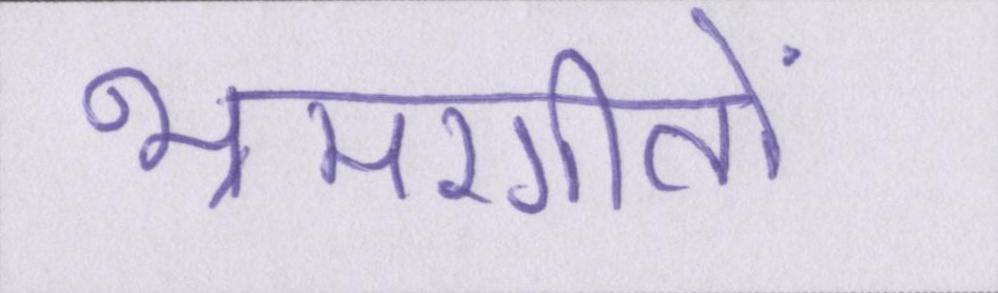 भ्रमरगीतों